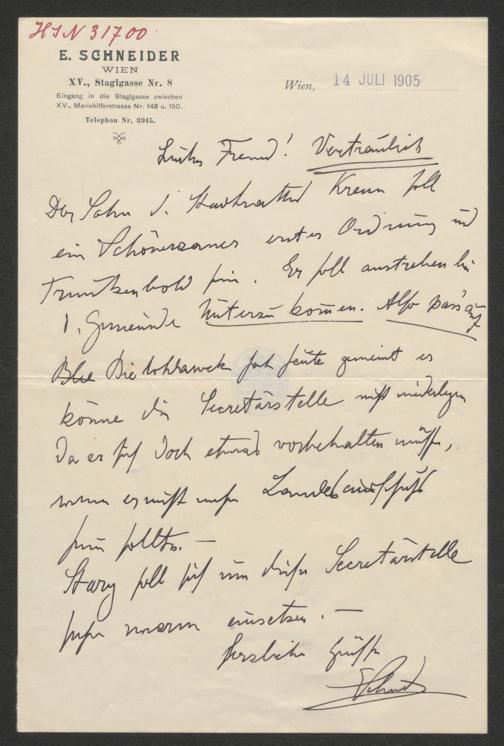 HIN 31700
E. SCHNEIDER
WIEN
XV., Staglgasse Nr. 8
Eingang in die Staglgasse zwischen
XV., Mariahilferstrasse Nr. 148 u. 150.
Telephon Nr. 3945.
Wien, 14 JULI 1905
Lieber Freund! Vertraulich
Der Sohn d. Stadtrathes Krenn soll
ein Schönerianer erster Ordnung und
Trunkenbold sein. Er soll anstreben bei
d. Gemeinde Unterzukommen. Also pass auf
Bielohlawek hat heute gemeint er
könne die Secretärstelle nicht niederlegen
da er sich doch etwas vorbehalten müsse,
wenn er nicht mehr Landesausschuß
sein sollte. —
Stary soll sich um diese Secretärstelle
sehr warm einsetzen. —
herzliche Grüße
ESchneider